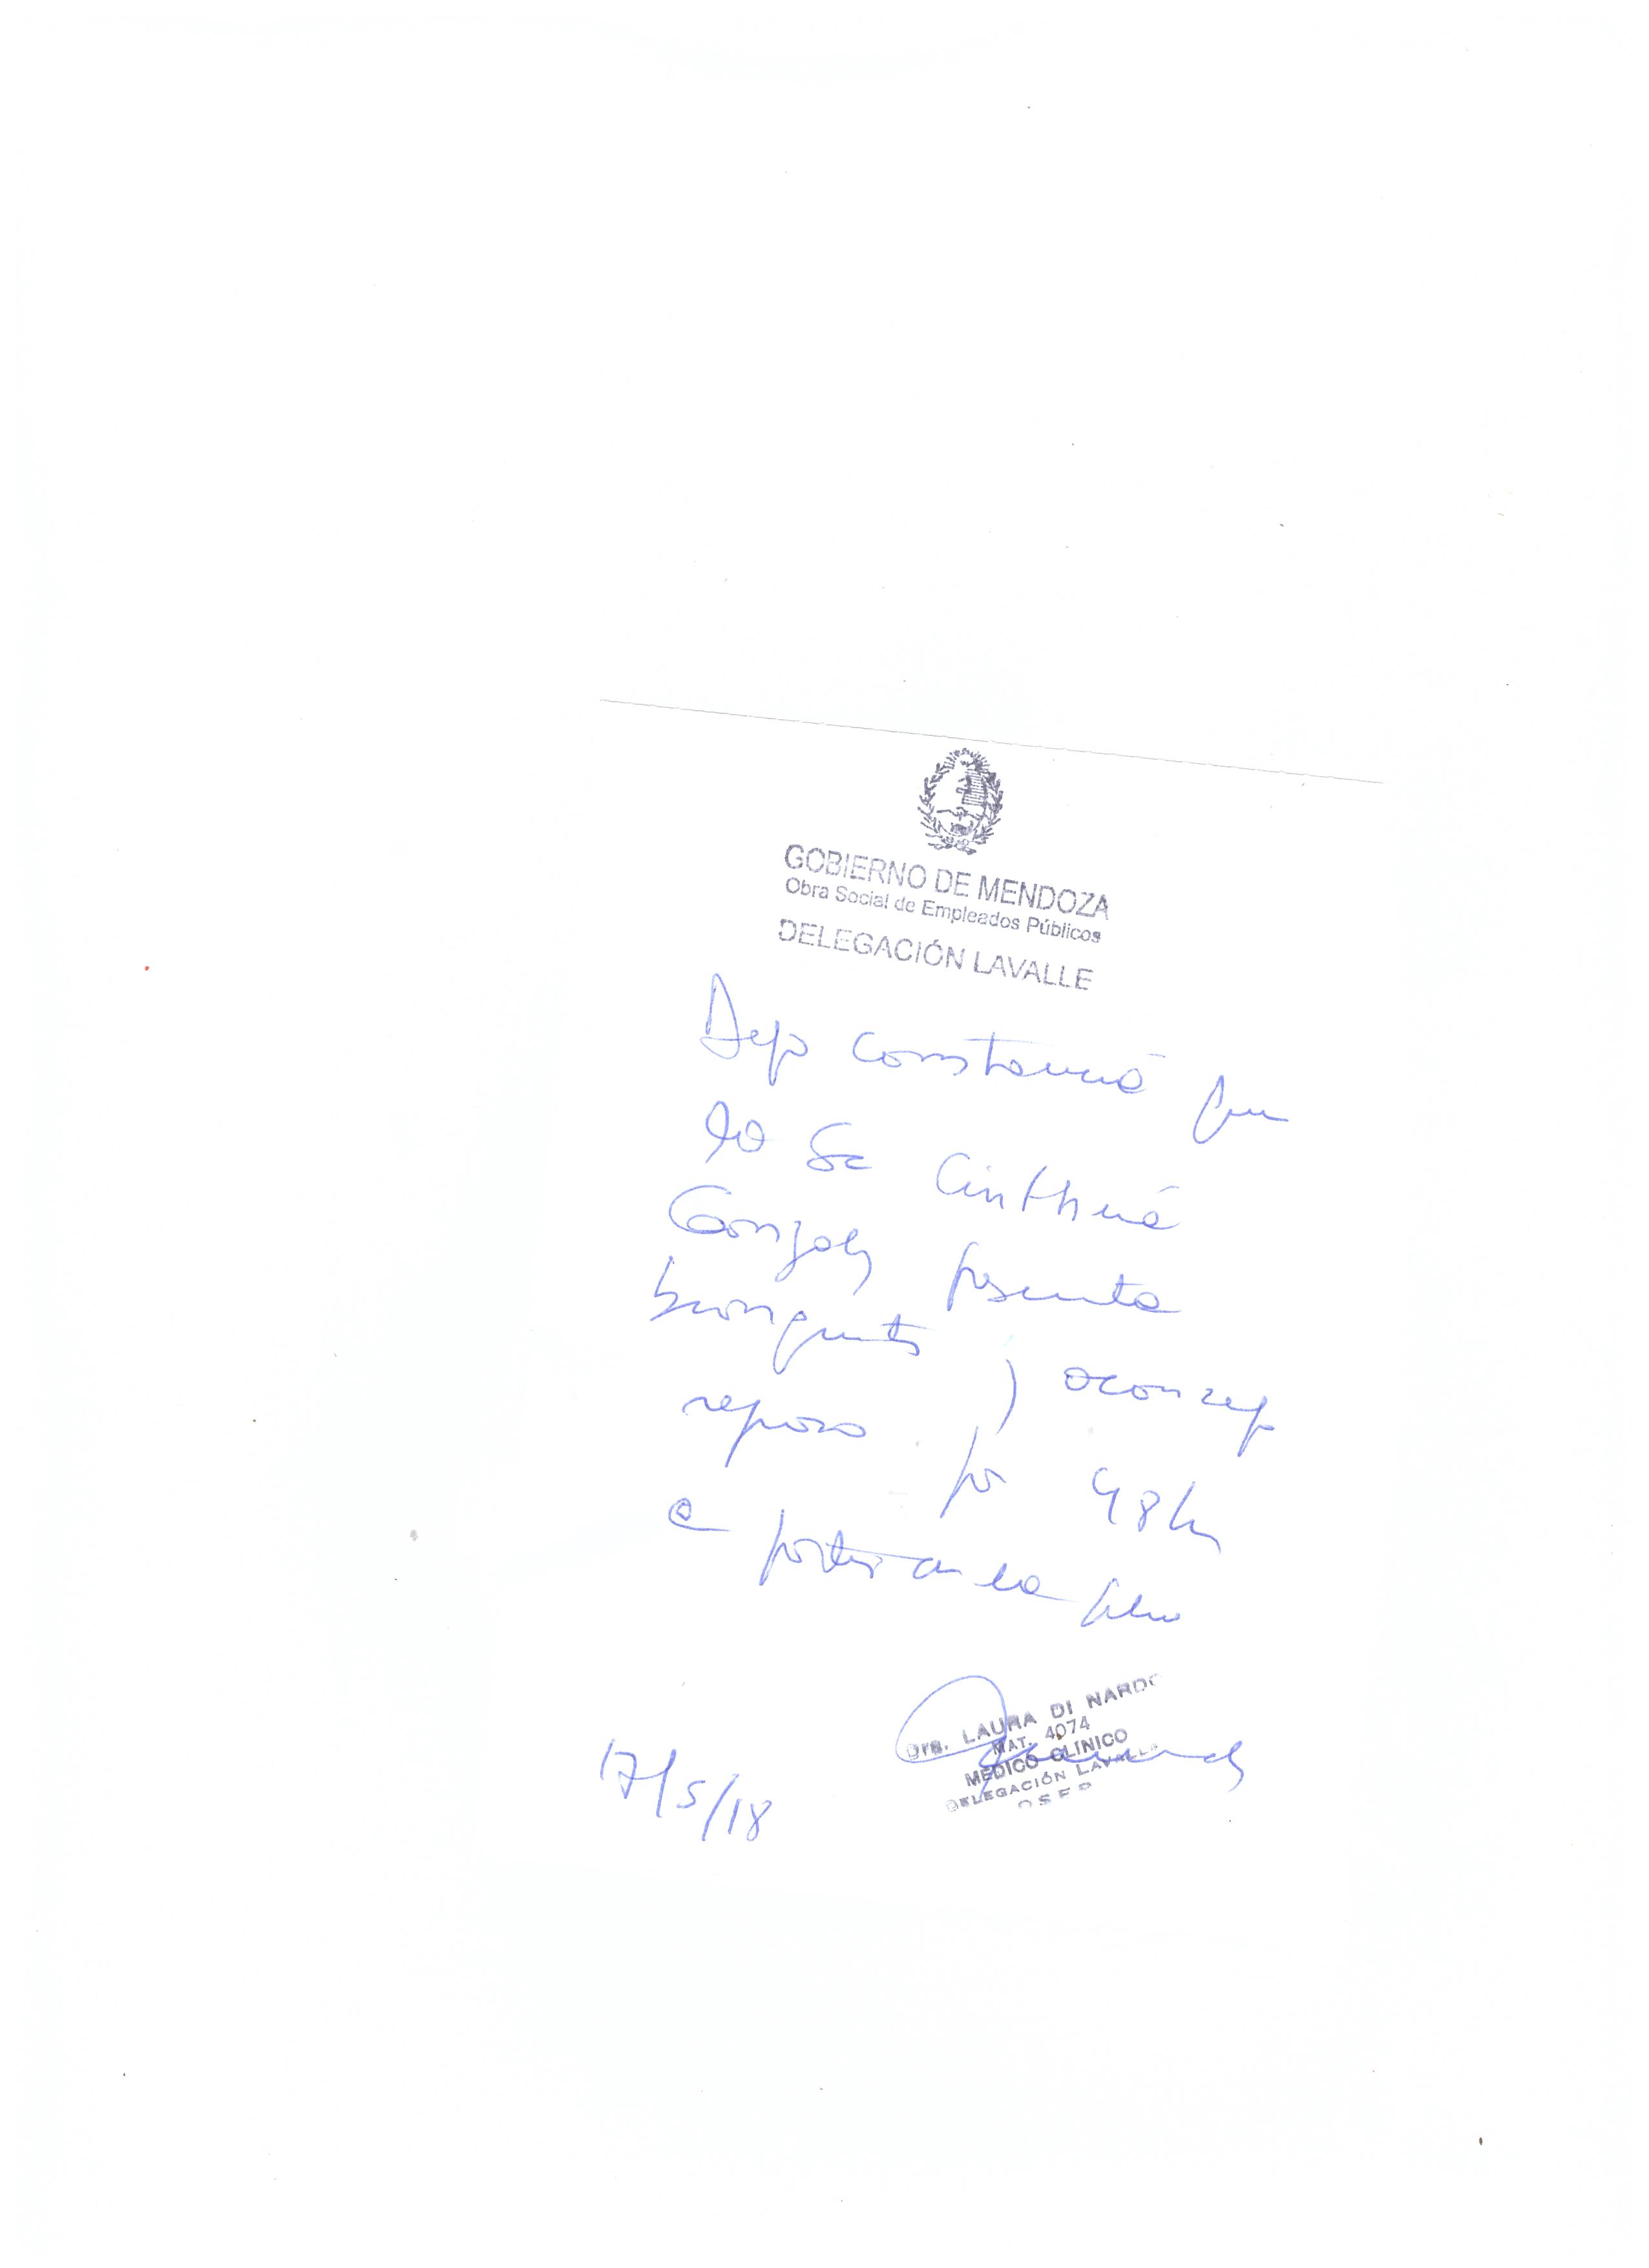 GOBIERNO DE MENDOZA
Obra Social de Empleados Públicos
DELEGACIÓN LAVALLE
Dejo constancia que
la Sra Cinthia
Gonzalez presenta
bronquitis, aconsejo
reposo por 48hs
a partir de la fecha
17/5/18
Dra. LAURA DI NARDO
MAT. 4074
MEDICO CLINICO
DELEGACIÓN LAVALLE
OSEP